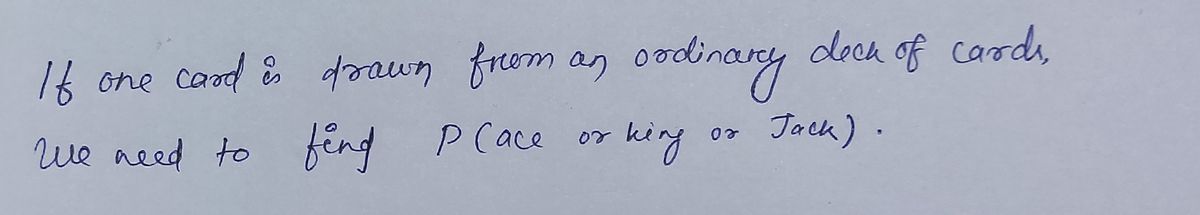 If one card is drawn from an ordinary deck of cards,
We need to find P(ace or king or Jack).